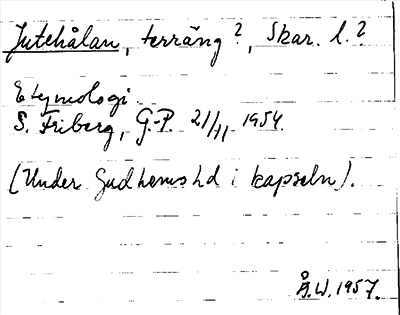 Jutehålan, terräng?, Skar. l.?
Etymologi.
S. Friberg, G.-P. 21/11 1954.
(Under Gudhems hd i kapseln).
Å.W. 1957.